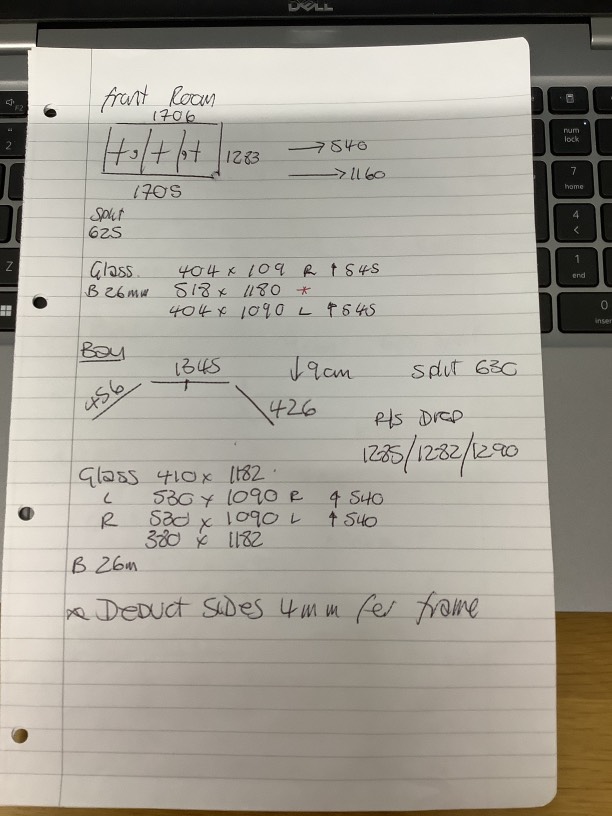 DELL
Front Room
1706
1283 → 540
→ 1160
1705
Split
625
Glass. 404 x 109 R ↑ 545
B 26mm 518 x 1180 *
404 x 1090 L ↑ 545
Bay
1345 ↓ 9cm Split 630
456 426
P/S Drop
1285/1282/1290
Glass 410 x 1182
L 530 x 1090 R ↑ 540
R 530 x 1090 L ↑ 540
380 x 1182
B 26m
* DEDUCT SIDES 4mm Per frame
num
lock
7
home
4
<
1
end
0
F2
2
Z